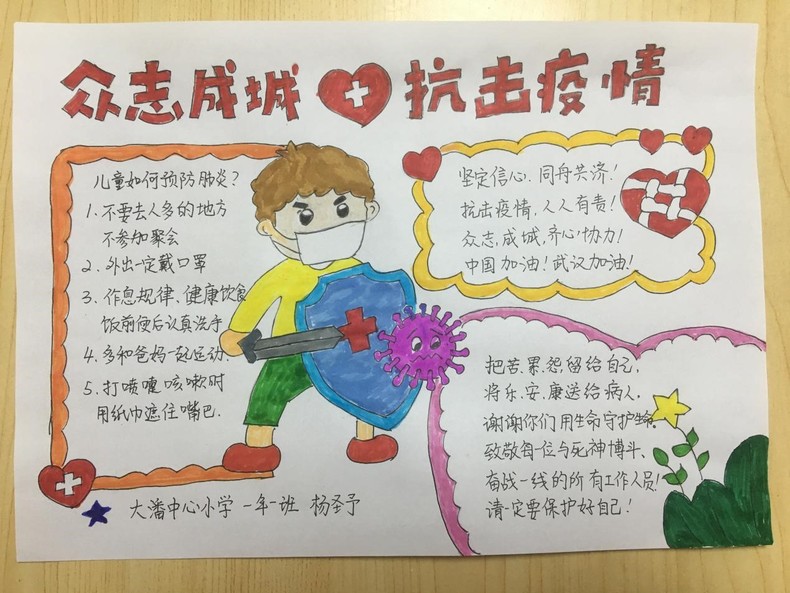 众志成城 抗击疫情
儿童如何预防肺炎？
1. 不要去人多的地方
不参加聚会
2. 外出一定戴口罩
3. 作息规律、健康饮食
饭前便后认真洗手
4. 多和爸妈一起运动.
5. 打喷嚏咳嗽时
用纸巾遮住嘴巴.
大潘中心小学 一年一班 杨圣予
坚定信心、同舟共济！
抗击疫情，人人有责！
众志成城，齐心协力！
中国加油！武汉加油！
把苦.累.怨留给自己，
将乐、安、康送给病人.
谢谢你们用生命守护生命.
致敬每一位与死神博斗、
奋战一线的所有工作人员！
请一定要保护好自己！